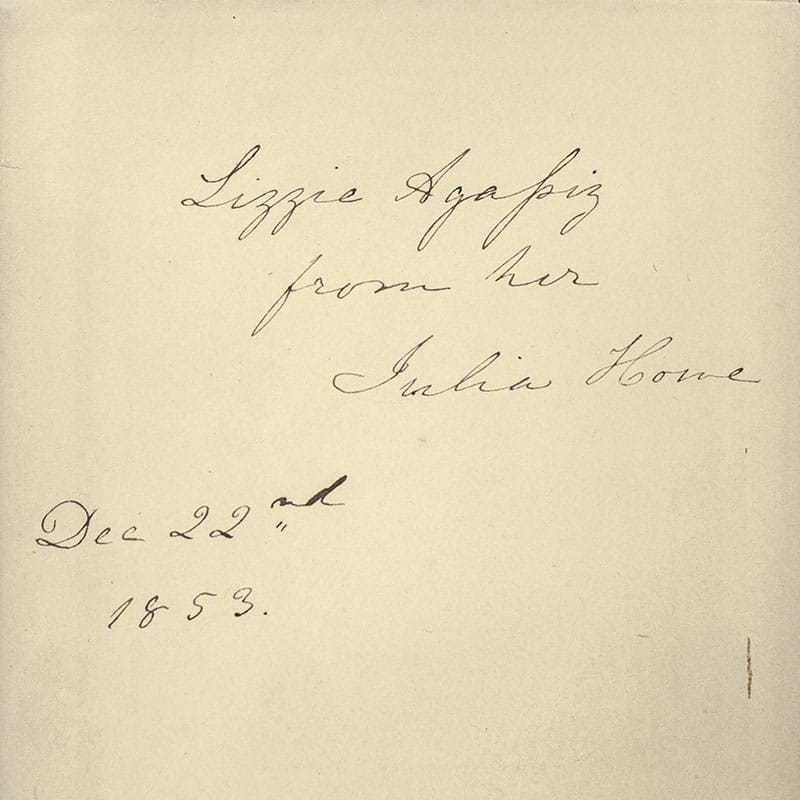 Lizzie Agaſsiz
from her
Julia Howe
Dec 22nd
1853.